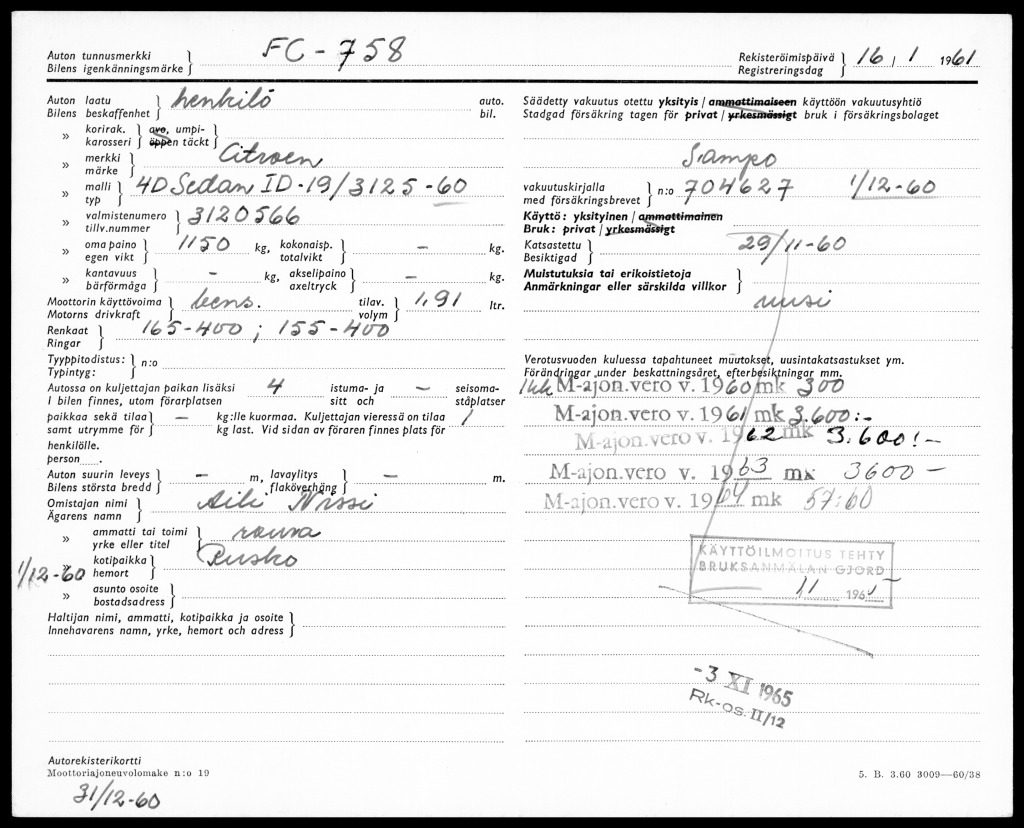 Auton tunnusmerkki
Bilens igenkänningsmärke
FC-758
Rekisteröimispäivä
Registreringsdag
16 / 1 1961
Auton laatu
Bilens beskaffenhet
henkilö
auto.
bil.
» korirak. avo, umpi-
karosseri öppen täckt
» merkki
märke
Citroen
» malli
typ
4D Sedan ID-19/3125-60
» valmistenumero
tillv.nummer
3120566
» oma paino
egen vikt
1150 kg, kokonaisp.
totalvikt
– kg.
» kantavuus
bärförmåga
– kg, akselipaino
axeltryck
– kg.
Moottorin käyttövoima
Motorns drivkraft
bens.
tilav.
volym
1,91 ltr.
Renkaat
Ringar
165-400 ; 155-400
Tyyppitodistus:
Typintyg:
n:o
Autossa on kuljettajan paikan lisäksi 4 istuma- ja – seisoma-
I bilen finnes, utom förarplatsen sitt och ståplatser
paikkaa sekä tilaa – kg:lle kuormaa. Kuljettajan vieressä on tilaa 1
samt utrymme för kg last. Vid sidan av föraren finnes plats för
henkilölle.
person
Auton suurin leveys
Bilens största bredd
– m, lavaylitys
flaköverhäng
– m.
Omistajan nimi
Ägarens namn
Aili Nissi
» ammatti tai toimi
yrke eller titel
rouva
» kotipaikka
hemort
Rusko
1/12-60
» asunto osoite
bostadsadress
Haltijan nimi, ammatti, kotipaikka ja osoite
Innehavarens namn, yrke, hemort och adress
Autorekisterikortti
Moottoriajoneuvolomake n:o 19
31/12-60
Säädetty vakuutus otettu yksityis / ammattimaiseen käyttöön vakuutusyhtiö
Stadgad försäkring tagen för privat / yrkesmässigt bruk i försäkringsbolaget
Sampo
vakuutuskirjalla
med försäkringsbrevet
n:o 704627 1/12-60
Käyttö: yksityinen / ammattimainen
Bruk: privat / yrkesmässigt
Katsastettu
Besiktigad
29/11-60
Muistutuksia tai erikoistietoja
Anmärkningar eller särskilda villkor
uusi
Verotusvuoden kuluessa tapahtuneet muutokset, uusintakatsastukset ym.
Förändringar under beskattningsåret, efterbesiktningar mm.
1kk M-ajon.vero v. 1960 mk 300
M-ajon.vero v. 1961 mk 3.600:-
M-ajon.vero v. 1962 mk 3.600:-
M-ajon.vero v. 1963 mk 3600-
M-ajon.vero v. 1964 mk 57:60
KÄYTTÖILMOITUS TEHTY
BRUKSANMÄLAN GJORD
11 1965
-3 XI 1965
Rk-os. II/12
5. B. 3.60 3009—60/38